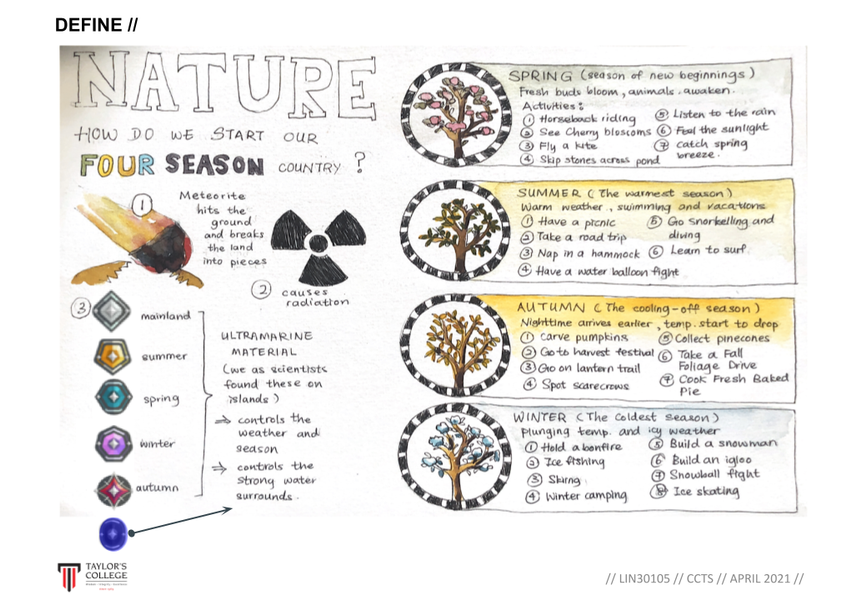 DEFINE //
NATURE
HOW DO WE START OUR
FOUR SEASON COUNTRY ?
①
Meteorite
hits the
ground
and breaks
the land
into pieces
② causes
radiation
③
mainland
summer
spring
winter
autumn
ULTRAMARINE
MATERIAL
(we as scientists
found these on
islands)
⇒ controls the
weather and
season
⇒ controls the
strong water
surrounds.
SPRING (season of new beginnings)
Fresh buds bloom, animals. awaken.
Activities:
① Horseback riding
② See Cherry blossoms
③ Fly a kite
④ Skip stones across pond
⑤ Listen to the rain
⑥ Feel the sunlight
⑦ catch spring
breeze.
SUMMER (The warmest season)
Warm weather, swimming and vacations
① Have a picnic
② Take a road trip
③ Nap in a hammock
④ Have a water balloon fight
⑤ Go snorkelling and
diving
⑥ Learn to surf
AUTUMN (The cooling-off season)
Nighttime arrives earlier, temp. start to drop
① Carve pumpkins
② Go to harvest festival
③ Go on lantern trail
④ Spot scarecrows
⑤ Collect pinecones
⑥ Take a Fall
Foliage Drive
⑦ Cook Fresh Baked
Pie
WINTER (The coldest season)
Plunging temp. and icy weather
① Hold a bonfire
② Ice fishing
③ Skiing
④ Winter camping
⑤ Build a snowman
⑥ Build an igloo
⑦ Snowball fight
⑧ Ice skating
TAYLOR'S
COLLEGE
// LIN30105 // CCTS // APRIL 2021 //